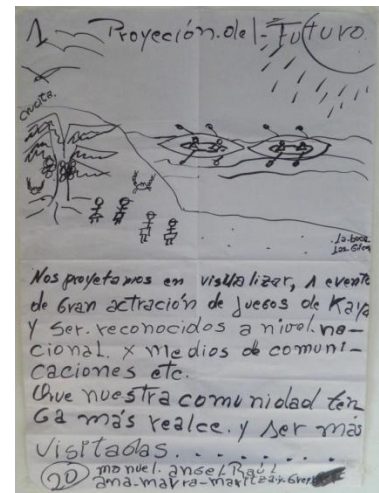 1 - Proyeción.del-Futuro
Crucita.
La boca
Nos proyetamos en visualizar, 1 evento
de Gran actración de Juegos de Kaya
y Ser. reconocidos a nivel na-
cional. x medios de comuni-
caciones etc.
Que nuestra comunidad ten
Ga más realce. y ser más
visitadas..........
20 manuel. angel Raúl
ana-mayra-maritza-y